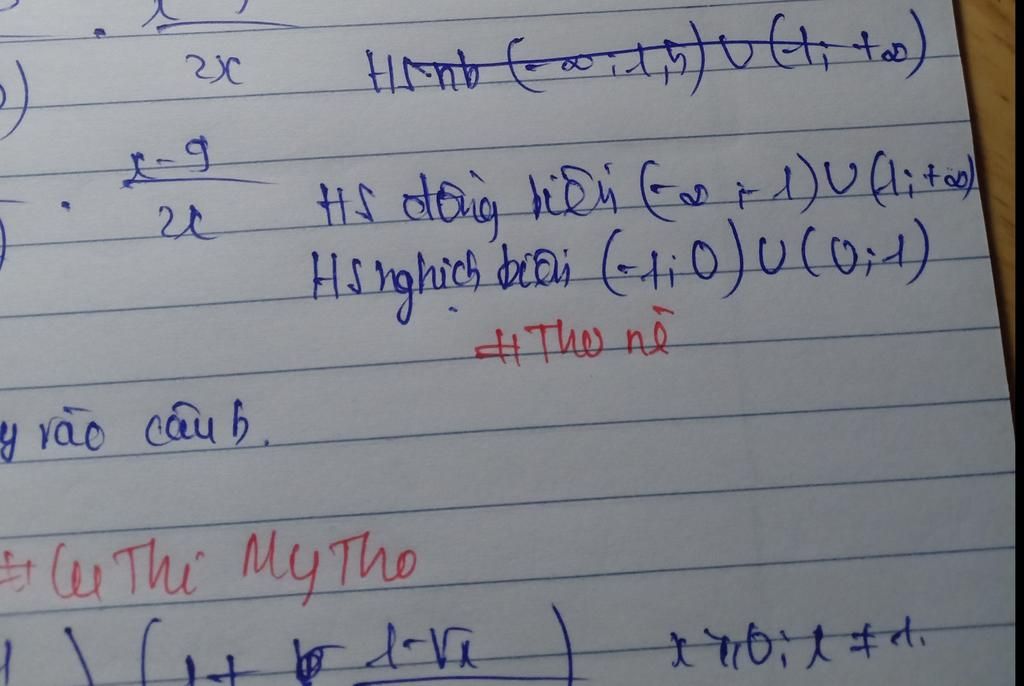 2x HS nb (-∞; -1,5) ∪ (-1; +∞)
x-9
2x HS đồng biến (-∞; -1) ∪ (1; +∞)
HS nghịch biến (-1; 0) ∪ (0; 1)
# Thơ nè
y vào câu b.
# Lu Thi My Tho
1-√x x ≥ 0; x ≠ 1.